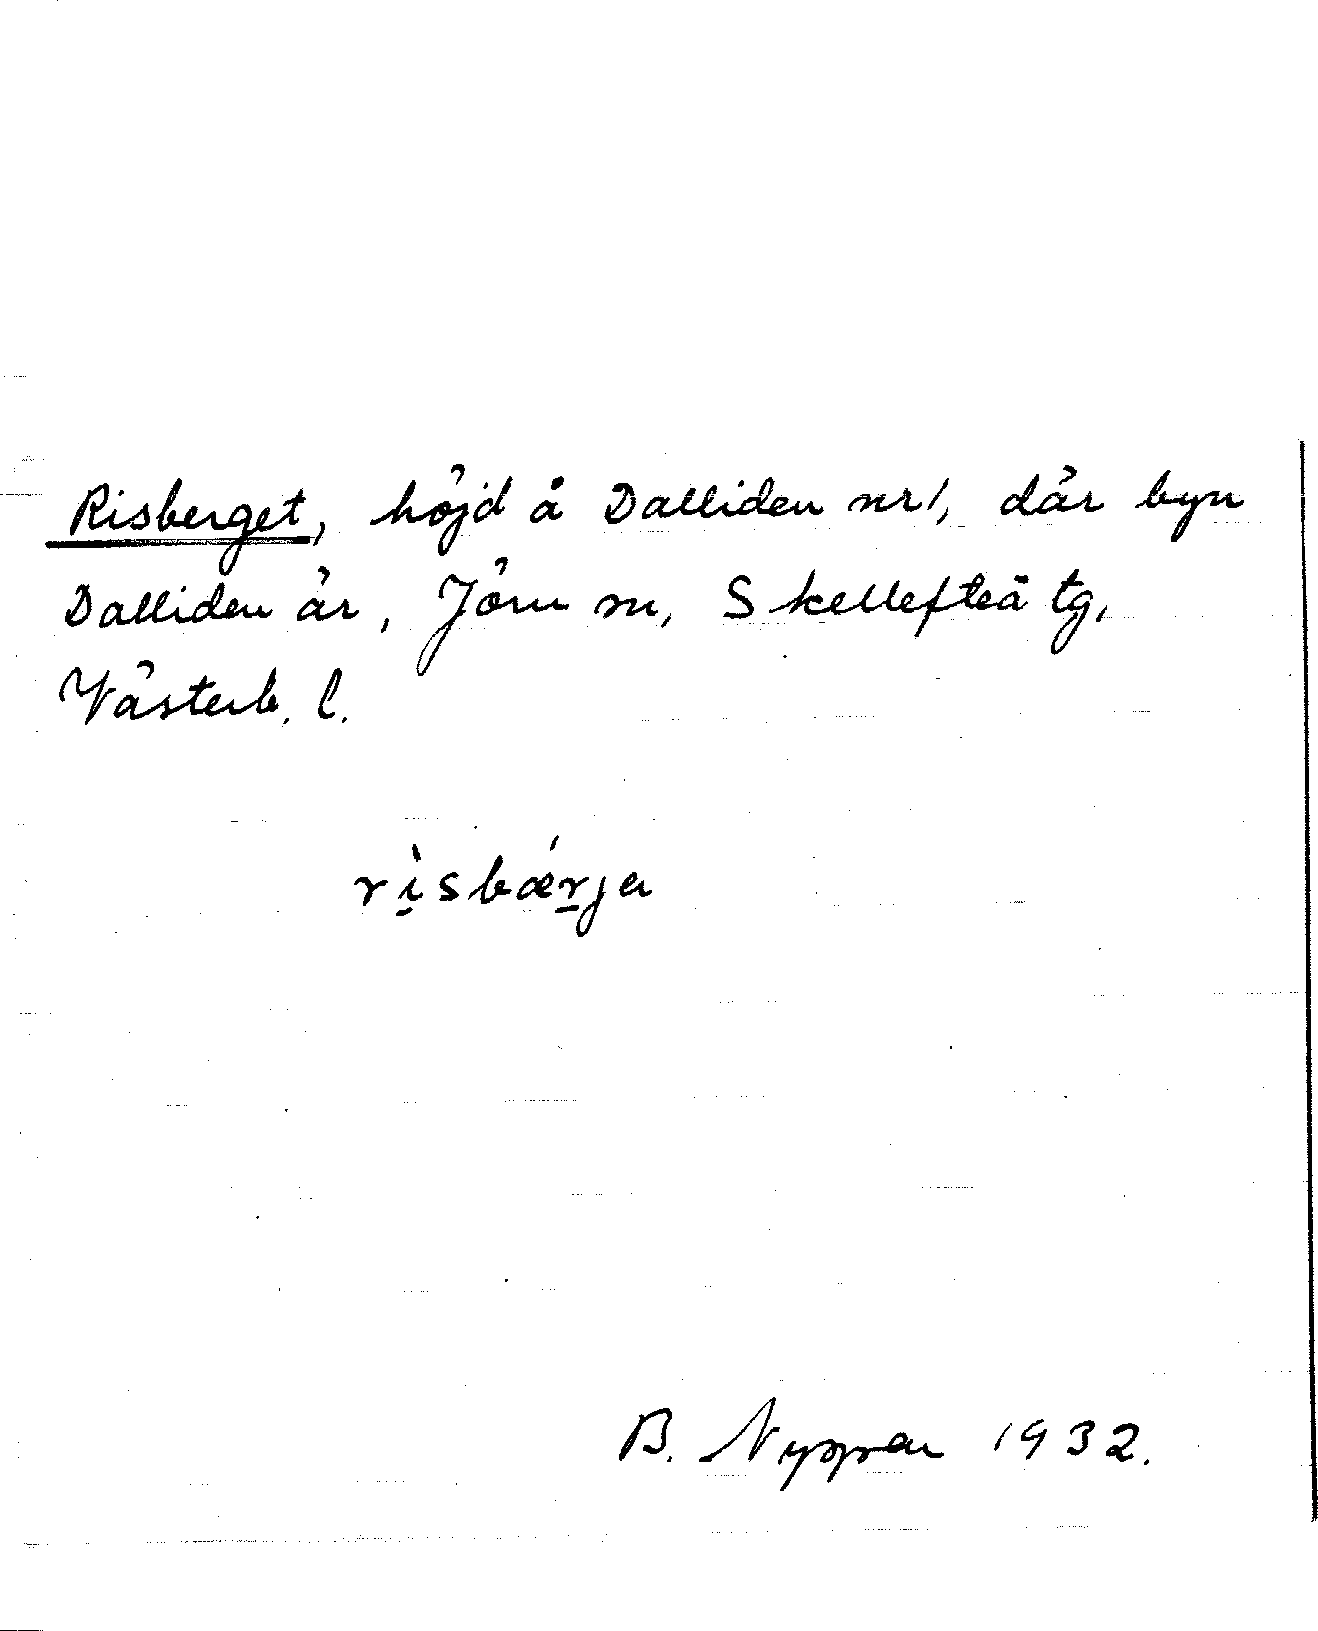 Risberget, höjd å Dalliden nr 1, där byn
Dalliden är, Jörn sn, Skellefteå tg,
Västerb. l.
rı̱̀sbǽṟja
B. Nyppen 1932.